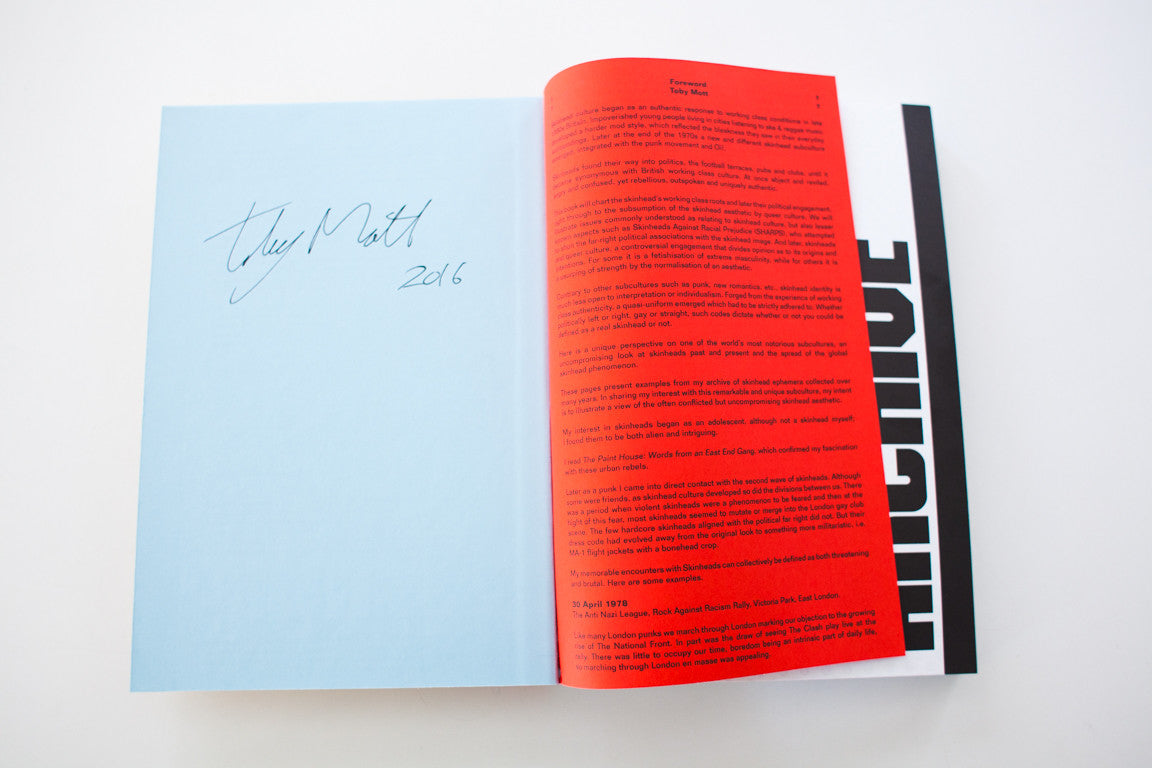 Toby Mott
2016
Foreword
Toby Mott
culture began as an authentic response to working class conditions in late
Britain. Impoverished young people living in cities listening to ska & reggae music
developed a harder mod style, which reflected the bleakness they saw in their everyday
surroundings. Later at the end of the 1970s a new and different skinhead subculture
emerged, integrated with the punk movement and Oi!.
Skinheads found their way into politics, the football terraces, pubs and clubs, until it
became synonymous with British working class culture. At once abject and reviled,
angry and confused, yet rebellious, outspoken and uniquely authentic.
This book will chart the skinhead's working class roots and later their political engagement,
right through to the subsumption of the skinhead aesthetic by queer culture. We will
illustrate issues commonly understood as relating to skinhead culture, but also lesser
known aspects such as Skinheads Against Racial Prejudice (SHARPS), who attempted
to shun the far-right political associations with the skinhead image. And later, skinheads
and queer culture, a controversial engagement that divides opinion as to its origins and
intentions. For some it is a fetishisation of extreme masculinity, while for others it is
a usurping of strength by the normalisation of an aesthetic.
Contrary to other subcultures such as punk, new romantics, etc., skinhead identity is
much less open to interpretation or individualism. Forged from the experience of working
class authenticity, a quasi-uniform emerged which had to be strictly adhered to. Whether
politically left or right, gay or straight, such codes dictate whether or not you could be
defined as a real skinhead or not.
Here is a unique perspective on one of the world's most notorious subcultures, an
uncompromising look at skinheads past and present and the spread of the global
skinhead phenomenon.
These pages present examples from my archive of skinhead ephemera collected over
many years. In sharing my interest with this remarkable and unique subculture, my intent
is to illustrate a view of the often conflicted but uncompromising skinhead aesthetic.
My interest in skinheads began as an adolescent, although not a skinhead myself;
I found them to be both alien and intriguing.
I read The Paint House: Words from an East End Gang, which confirmed my fascination
with these urban rebels.
Later as a punk I came into direct contact with the second wave of skinheads. Although
some were friends, as skinhead culture developed so did the divisions between us. There
was a period when violent skinheads were a phenomenon to be feared and then at the
hight of this fear, most skinheads seemed to mutate or merge into the London gay club
scene. The few hardcore skinheads aligned with the political far right did not. But their
dress code had evolved away from the original look to something more militaristic, i.e.
MA-1 flight jackets with a bonehead crop.
My memorable encounters with Skinheads can collectively be defined as both threatening
and brutal. Here are some examples.
30 April 1978
The Anti Nazi League, Rock Against Racism Rally, Victoria Park, East London.
Like many London punks we march through London marking our objection to the growing
rise of The National Front. In part was the draw of seeing The Clash play live at the
rally. There was little to occupy our time, boredom being an intrinsic part of daily life,
so marching through London en masse was appealing.